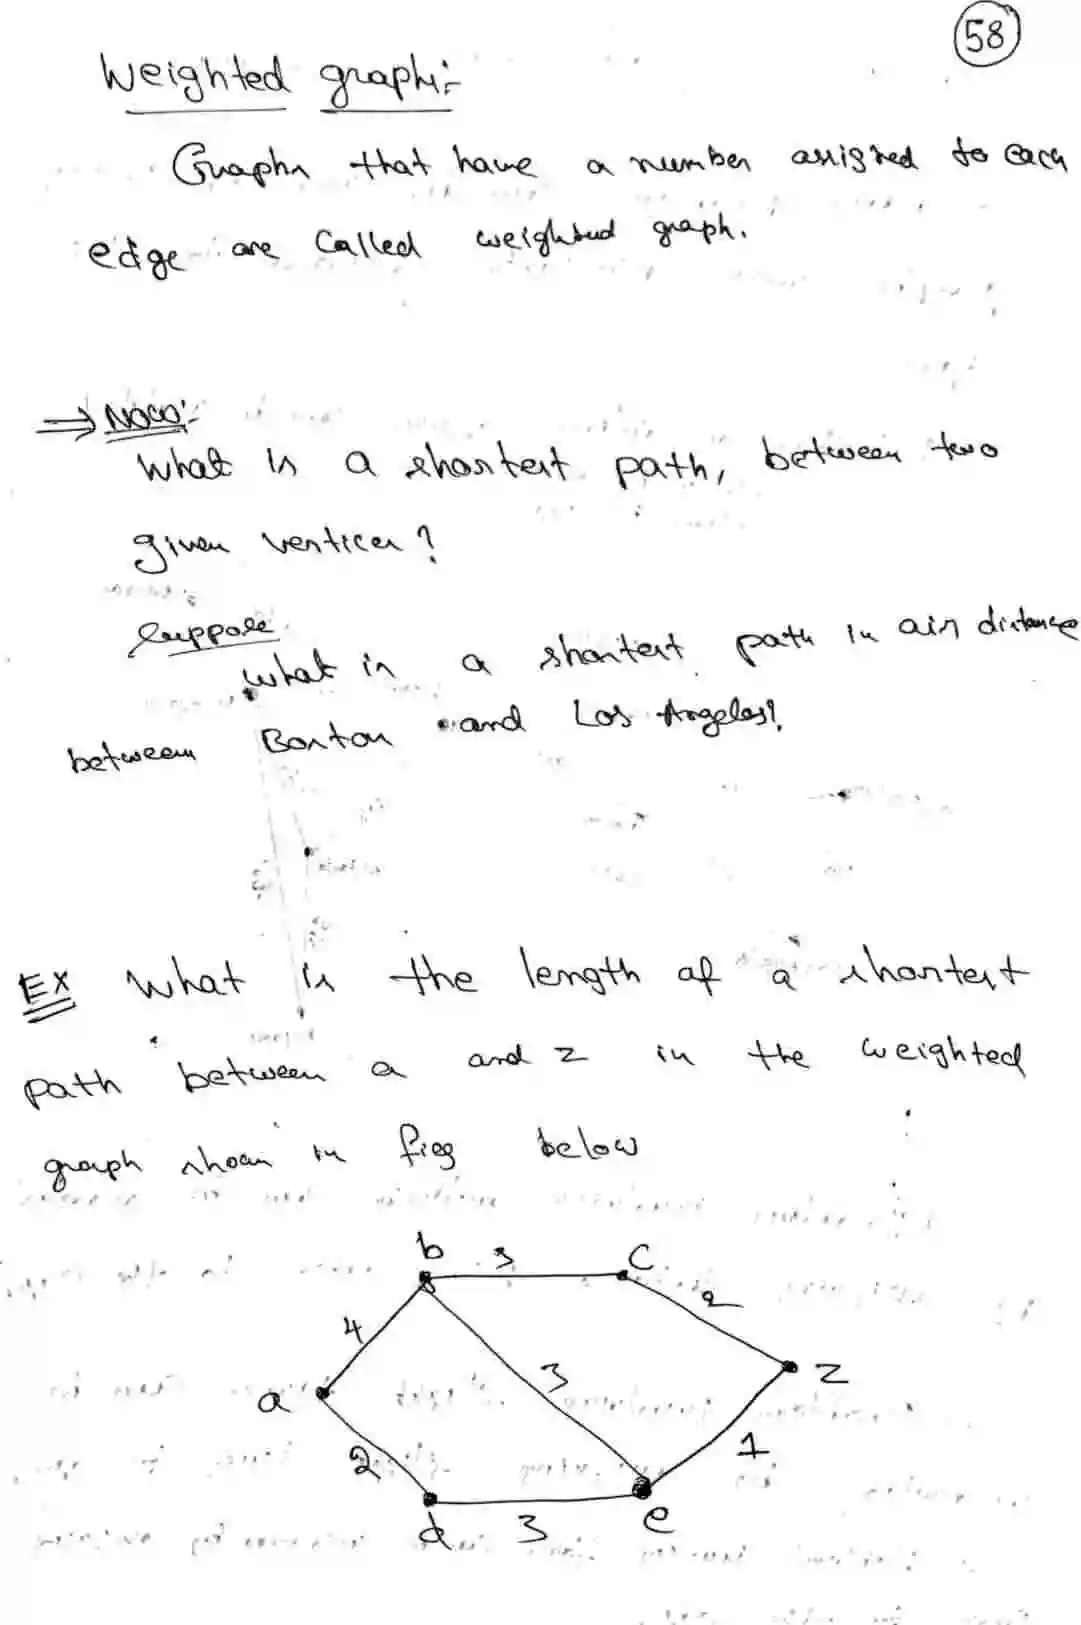 58
Weighted graph:-
Graphs that have a number assigned to each
edge are called weighted graph.
⇒ Now:-
What is a shortest path, between two
given vertices?
Suppose
what is a shortest path in air distance
between Boston and Los Angeles?
EX What is the length of a shortest
path between a and z in the weighted
graph shown in fig below
b 3 c
2
4
3 z
a
1
2
d 3 e